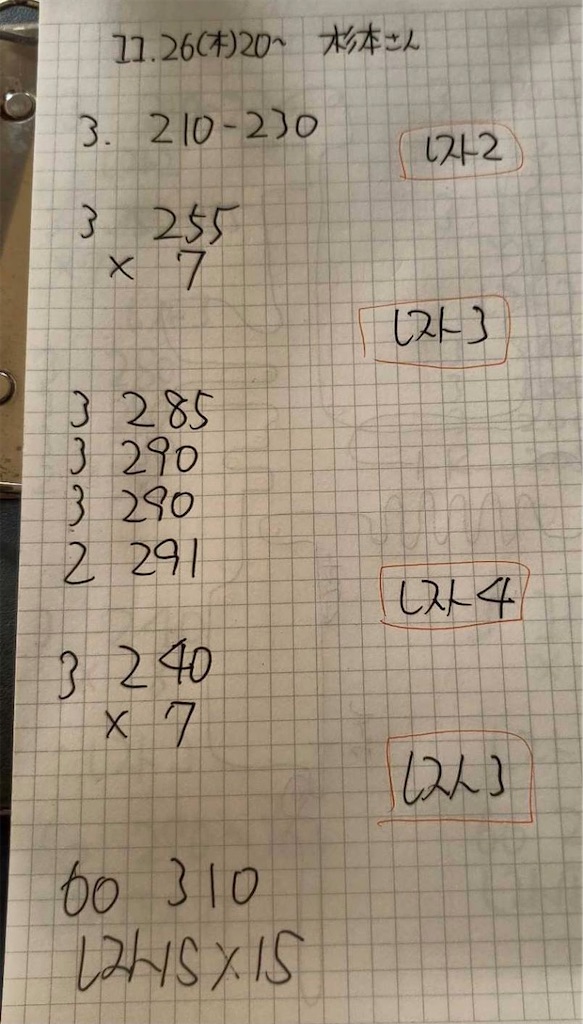 11.26(木)20~ 杉本さん
3. 210-230
レスト2
3 255
× 7
レスト3
3 285
3 290
3 290
2 291
レスト4
3 240
× 7
レスト3
60 310
レスト15×15